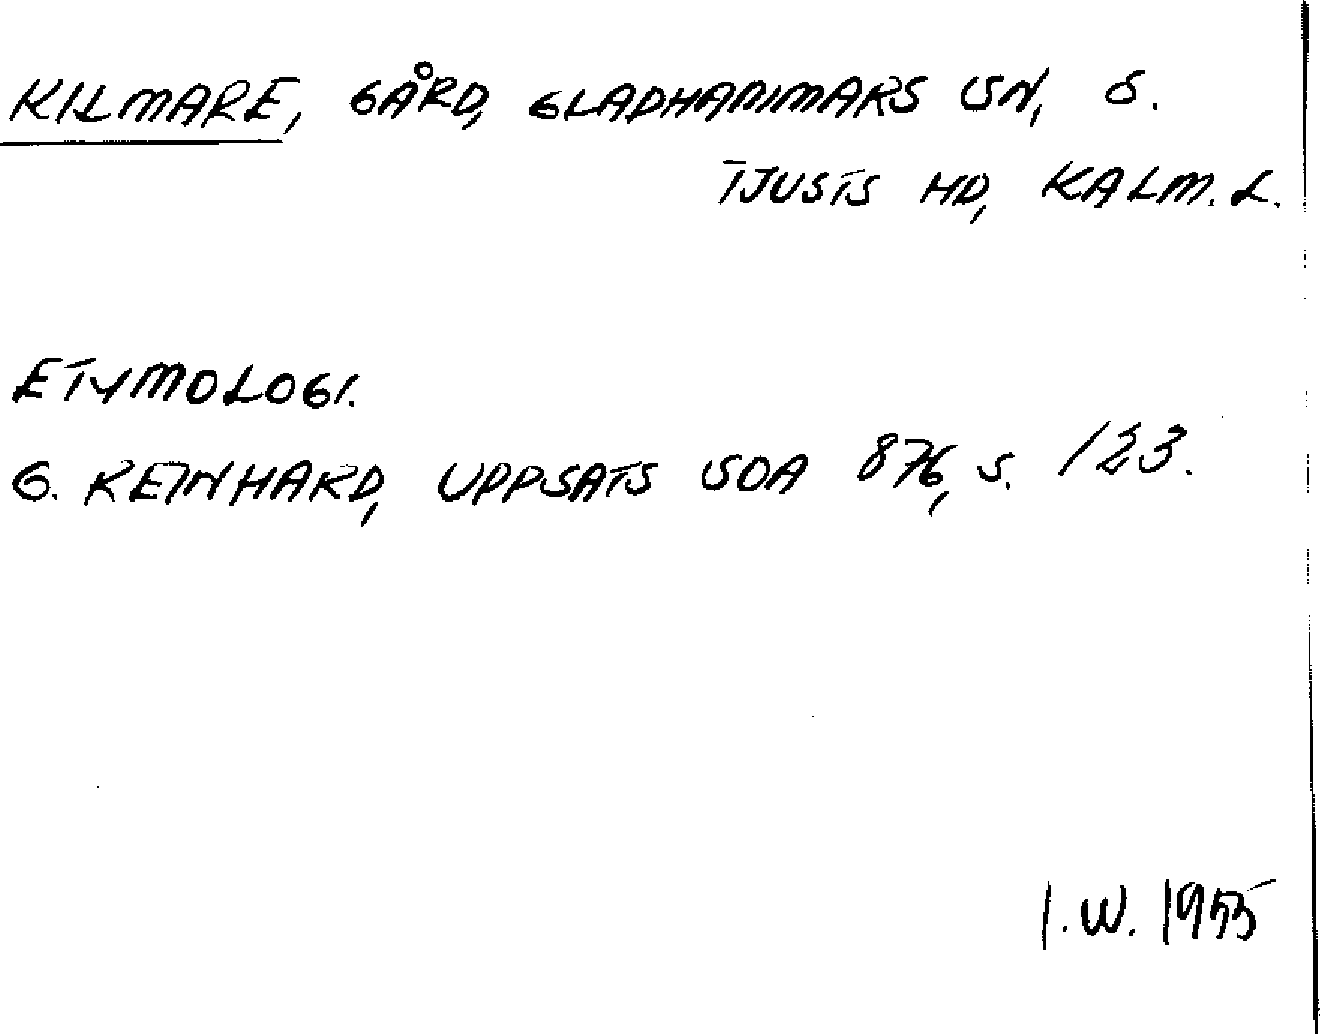 KILMARE, GÅRD, GLADHAMMARS SN, S.
TJUSTS HD, KALM. L.
ETYMOLOGI.
G. REINHARD, UPPSATS SOA 876, S. 123.
I. W. 1955